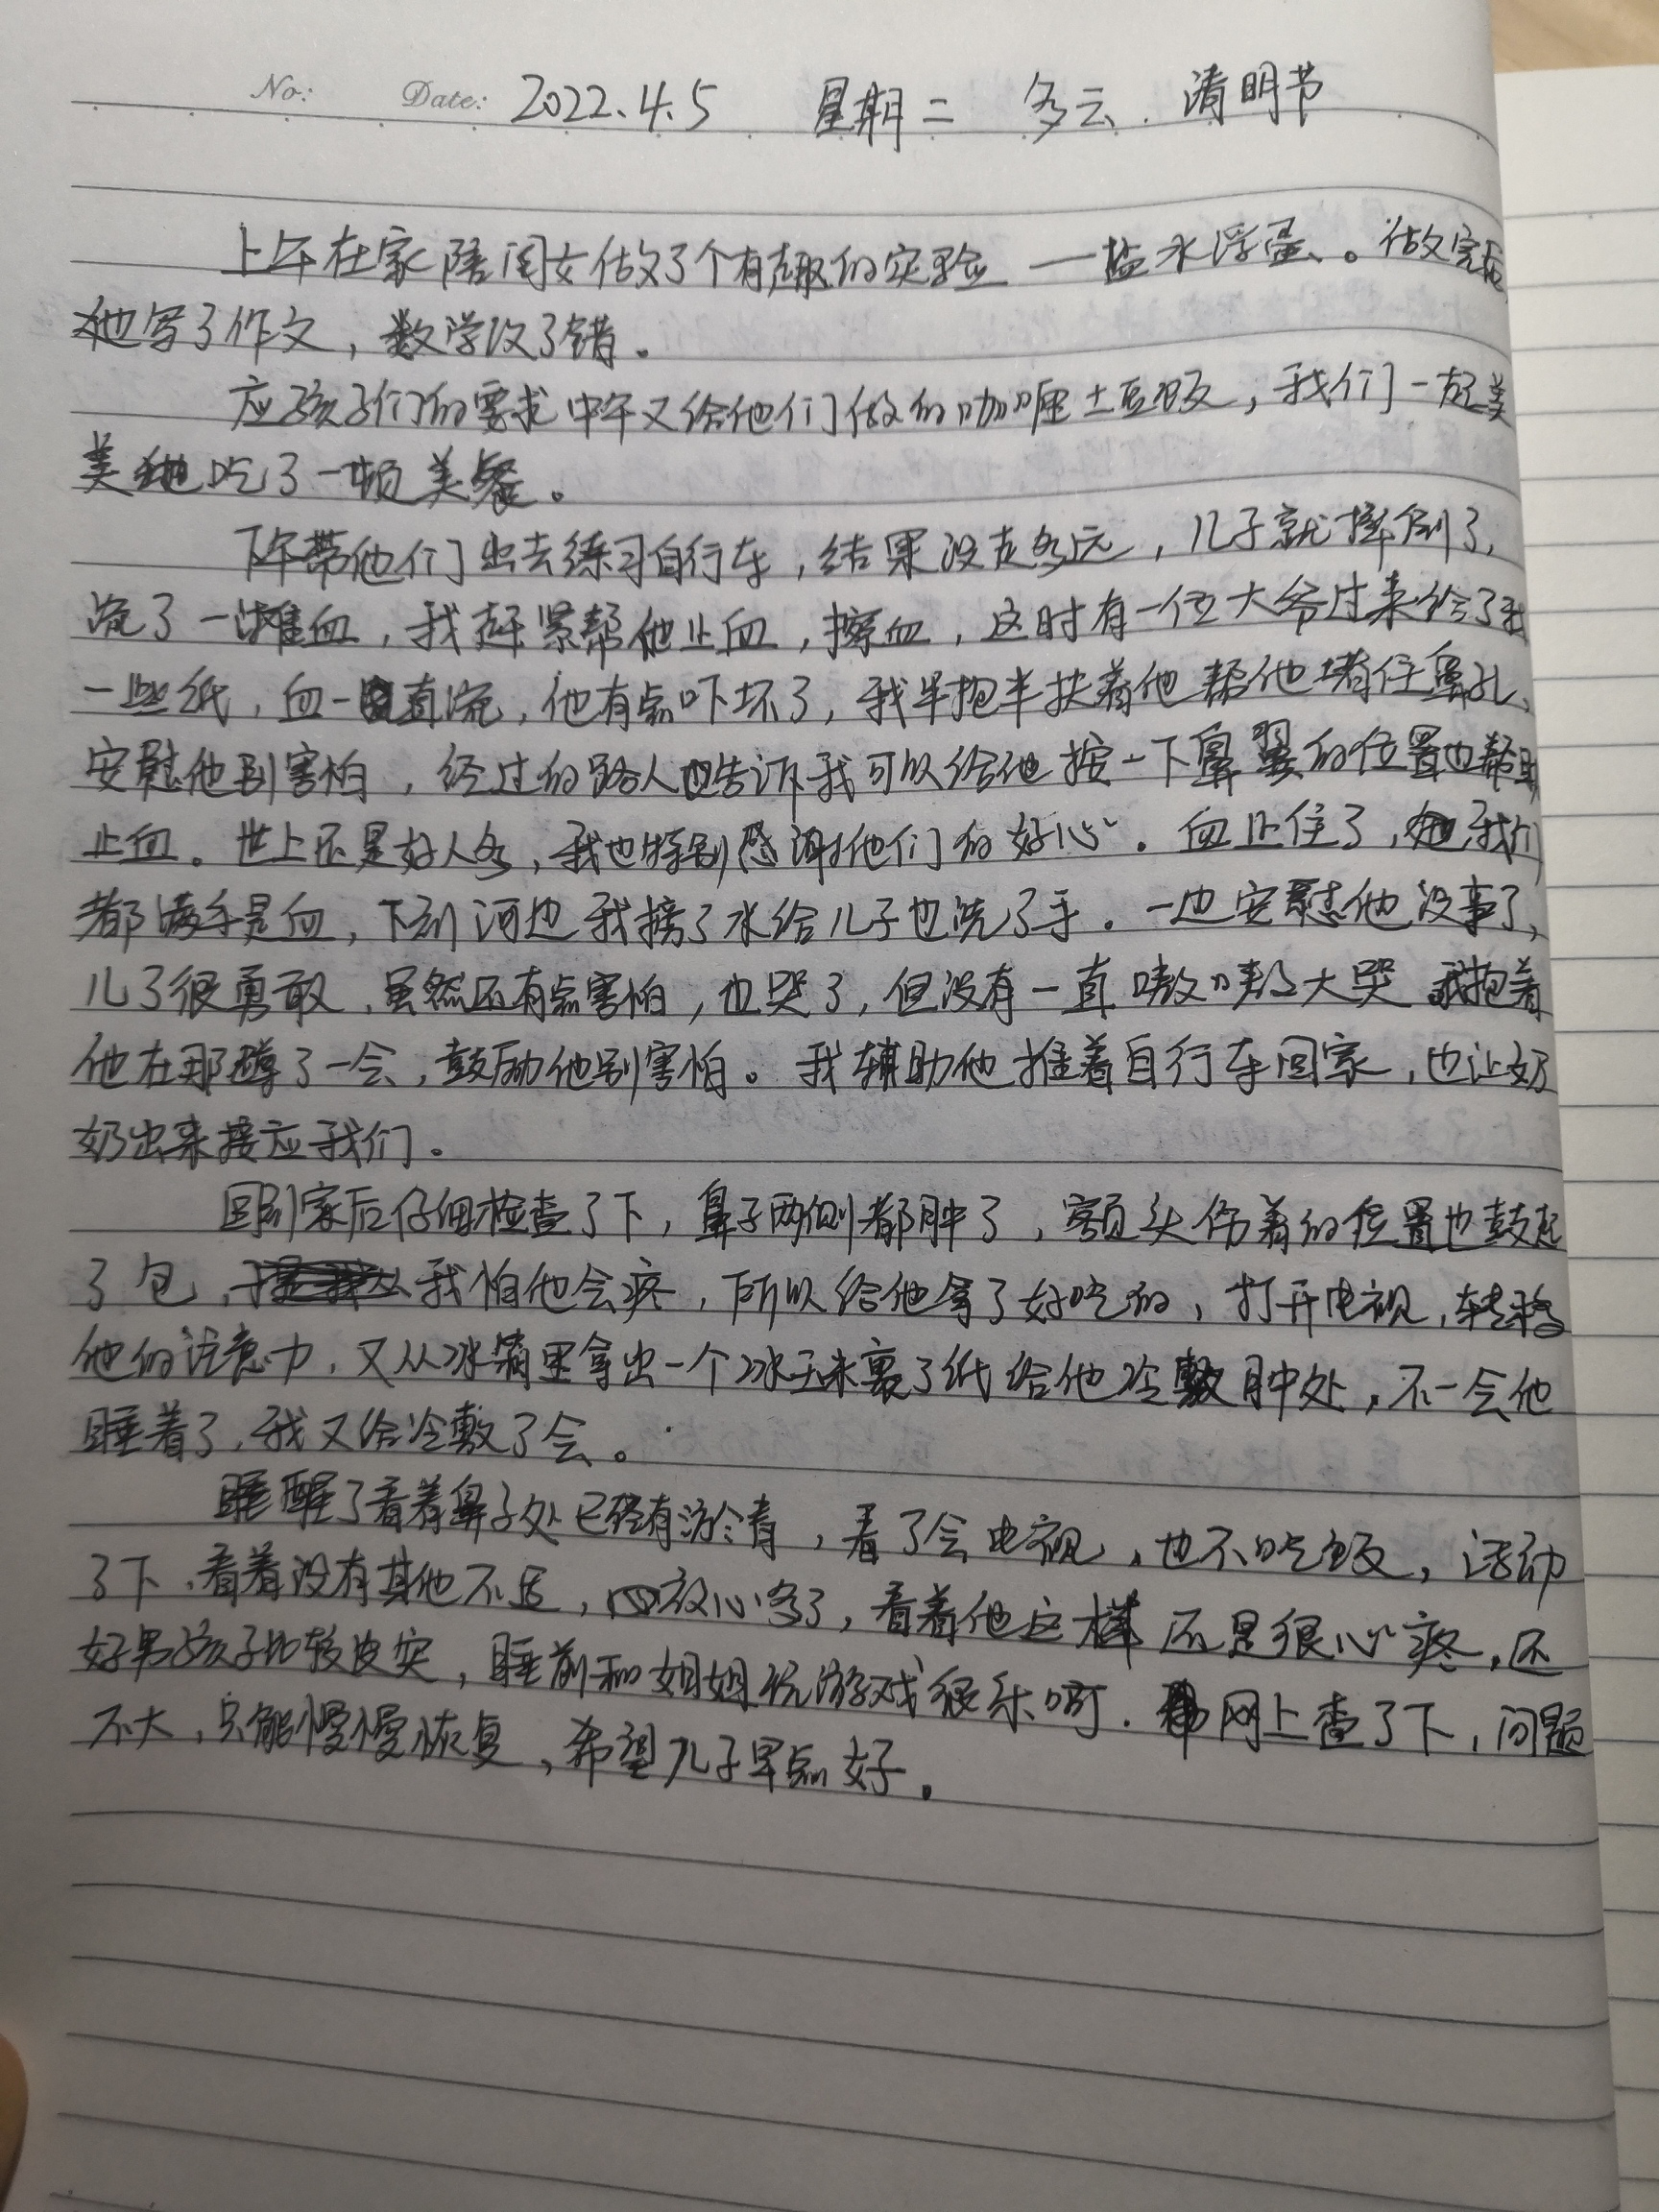 No: Date: 2022.4.5 星期二 多云 清明节
上午在家陪闺女做了个有趣的实验——盐水浮蛋。做完后
她写了作文，数学改了错。
应孩子们的要求中午又给他们做的咖喱土豆饭，我们一起美
美地吃了一顿美餐。
下午带他们出去练习自行车，结果没走多远，儿子就摔倒了，
流了一滩血，我赶紧帮他止血，擦血，这时有一位大爷过来给了我
一些纸，血一直流，他有点吓坏了，我半抱半扶着他帮他堵住鼻孔、
安慰他别害怕，经过的路人也告诉我可以给他按一下鼻翼的位置也帮助
止血。世上还是好人多，我也特别感谢他们的好心。血止住了，我们
都满手是血，下到河边我捞了水给儿子也洗了手。一边安慰他没事了，
儿子很勇敢，虽然还有点害怕，也哭了，但没有一直嗷嗷大哭 我抱着
他在那蹲了一会，鼓励他别害怕。我辅助他推着自行车回家，也让奶
奶出来接应我们。
回到家后仔细检查了下，鼻子两侧都肿了，额头伤着的位置也鼓起
了包，我怕他会疼，所以给他拿了好吃的，打开电视，转移
他的注意力，又从冰箱里拿出一个冰玉米裹了纸给他冷敷肿处，不一会他
睡着了，我又给冷敷了会。
睡醒了看着鼻子处已经有淤青，看了会电视，也不吃饭，活动
了下，看着没有其他不适，放心多了，看着他这样还是很心疼，还
好男孩子比较皮实，睡前和姐姐玩游戏很乐呵．网上查了下，问题
不大，只能慢慢恢复，希望儿子早点好。